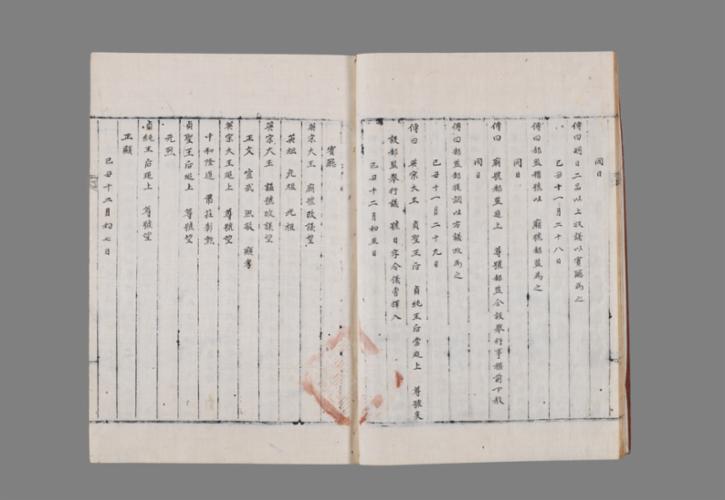 同日
傳曰明日二品以上收議以賓廳爲之
己丑十一月二十八日
傳曰都監稱號以 廟號都監爲之
同日
傳曰 廟號都監追上 尊號都監合設擧行事榻前下教
同日
傳曰都監郎廳以方議政爲之
己丑十一月二十九日
傳曰 英宗大王 貞聖王后 貞純王后當追上 尊號矣
設都監擧行議 號日字令儀曹擇入
己丑十二月初五日
賓廳
英宗大王 廟號改議望
英祖 光祖
英宗大王 諡號改議望
正文 宣武 熙敬 顯孝
英宗大王追上 尊號望
中和隆道 肅莊彰勳
貞聖王后追上 尊號望
元烈
貞純王后追上 尊號望
正顯
己丑十二月初七日